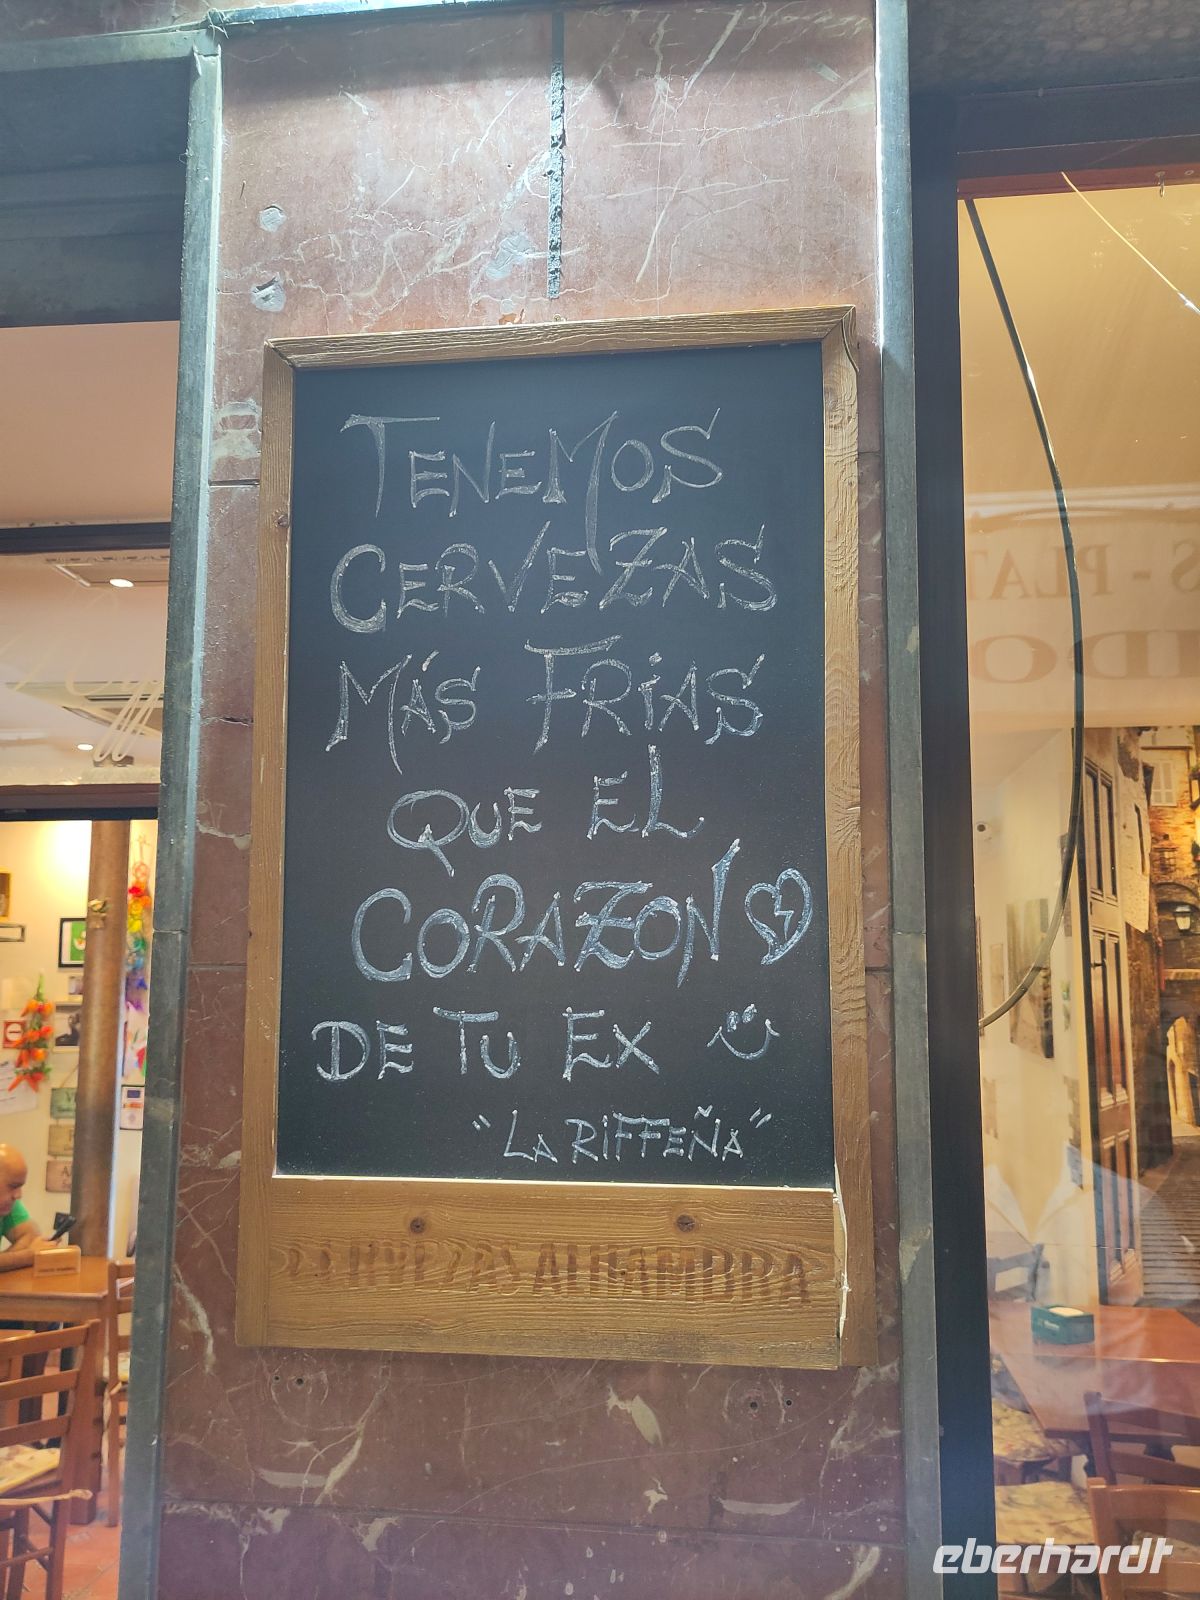 TENEMOS
CERVEZAS
MÁS FRíAS
QUE EL
CORAZON
DE TU EX
"LA RIFFEÑA"
CERVEZAS ALHAMBRA
eberhardt